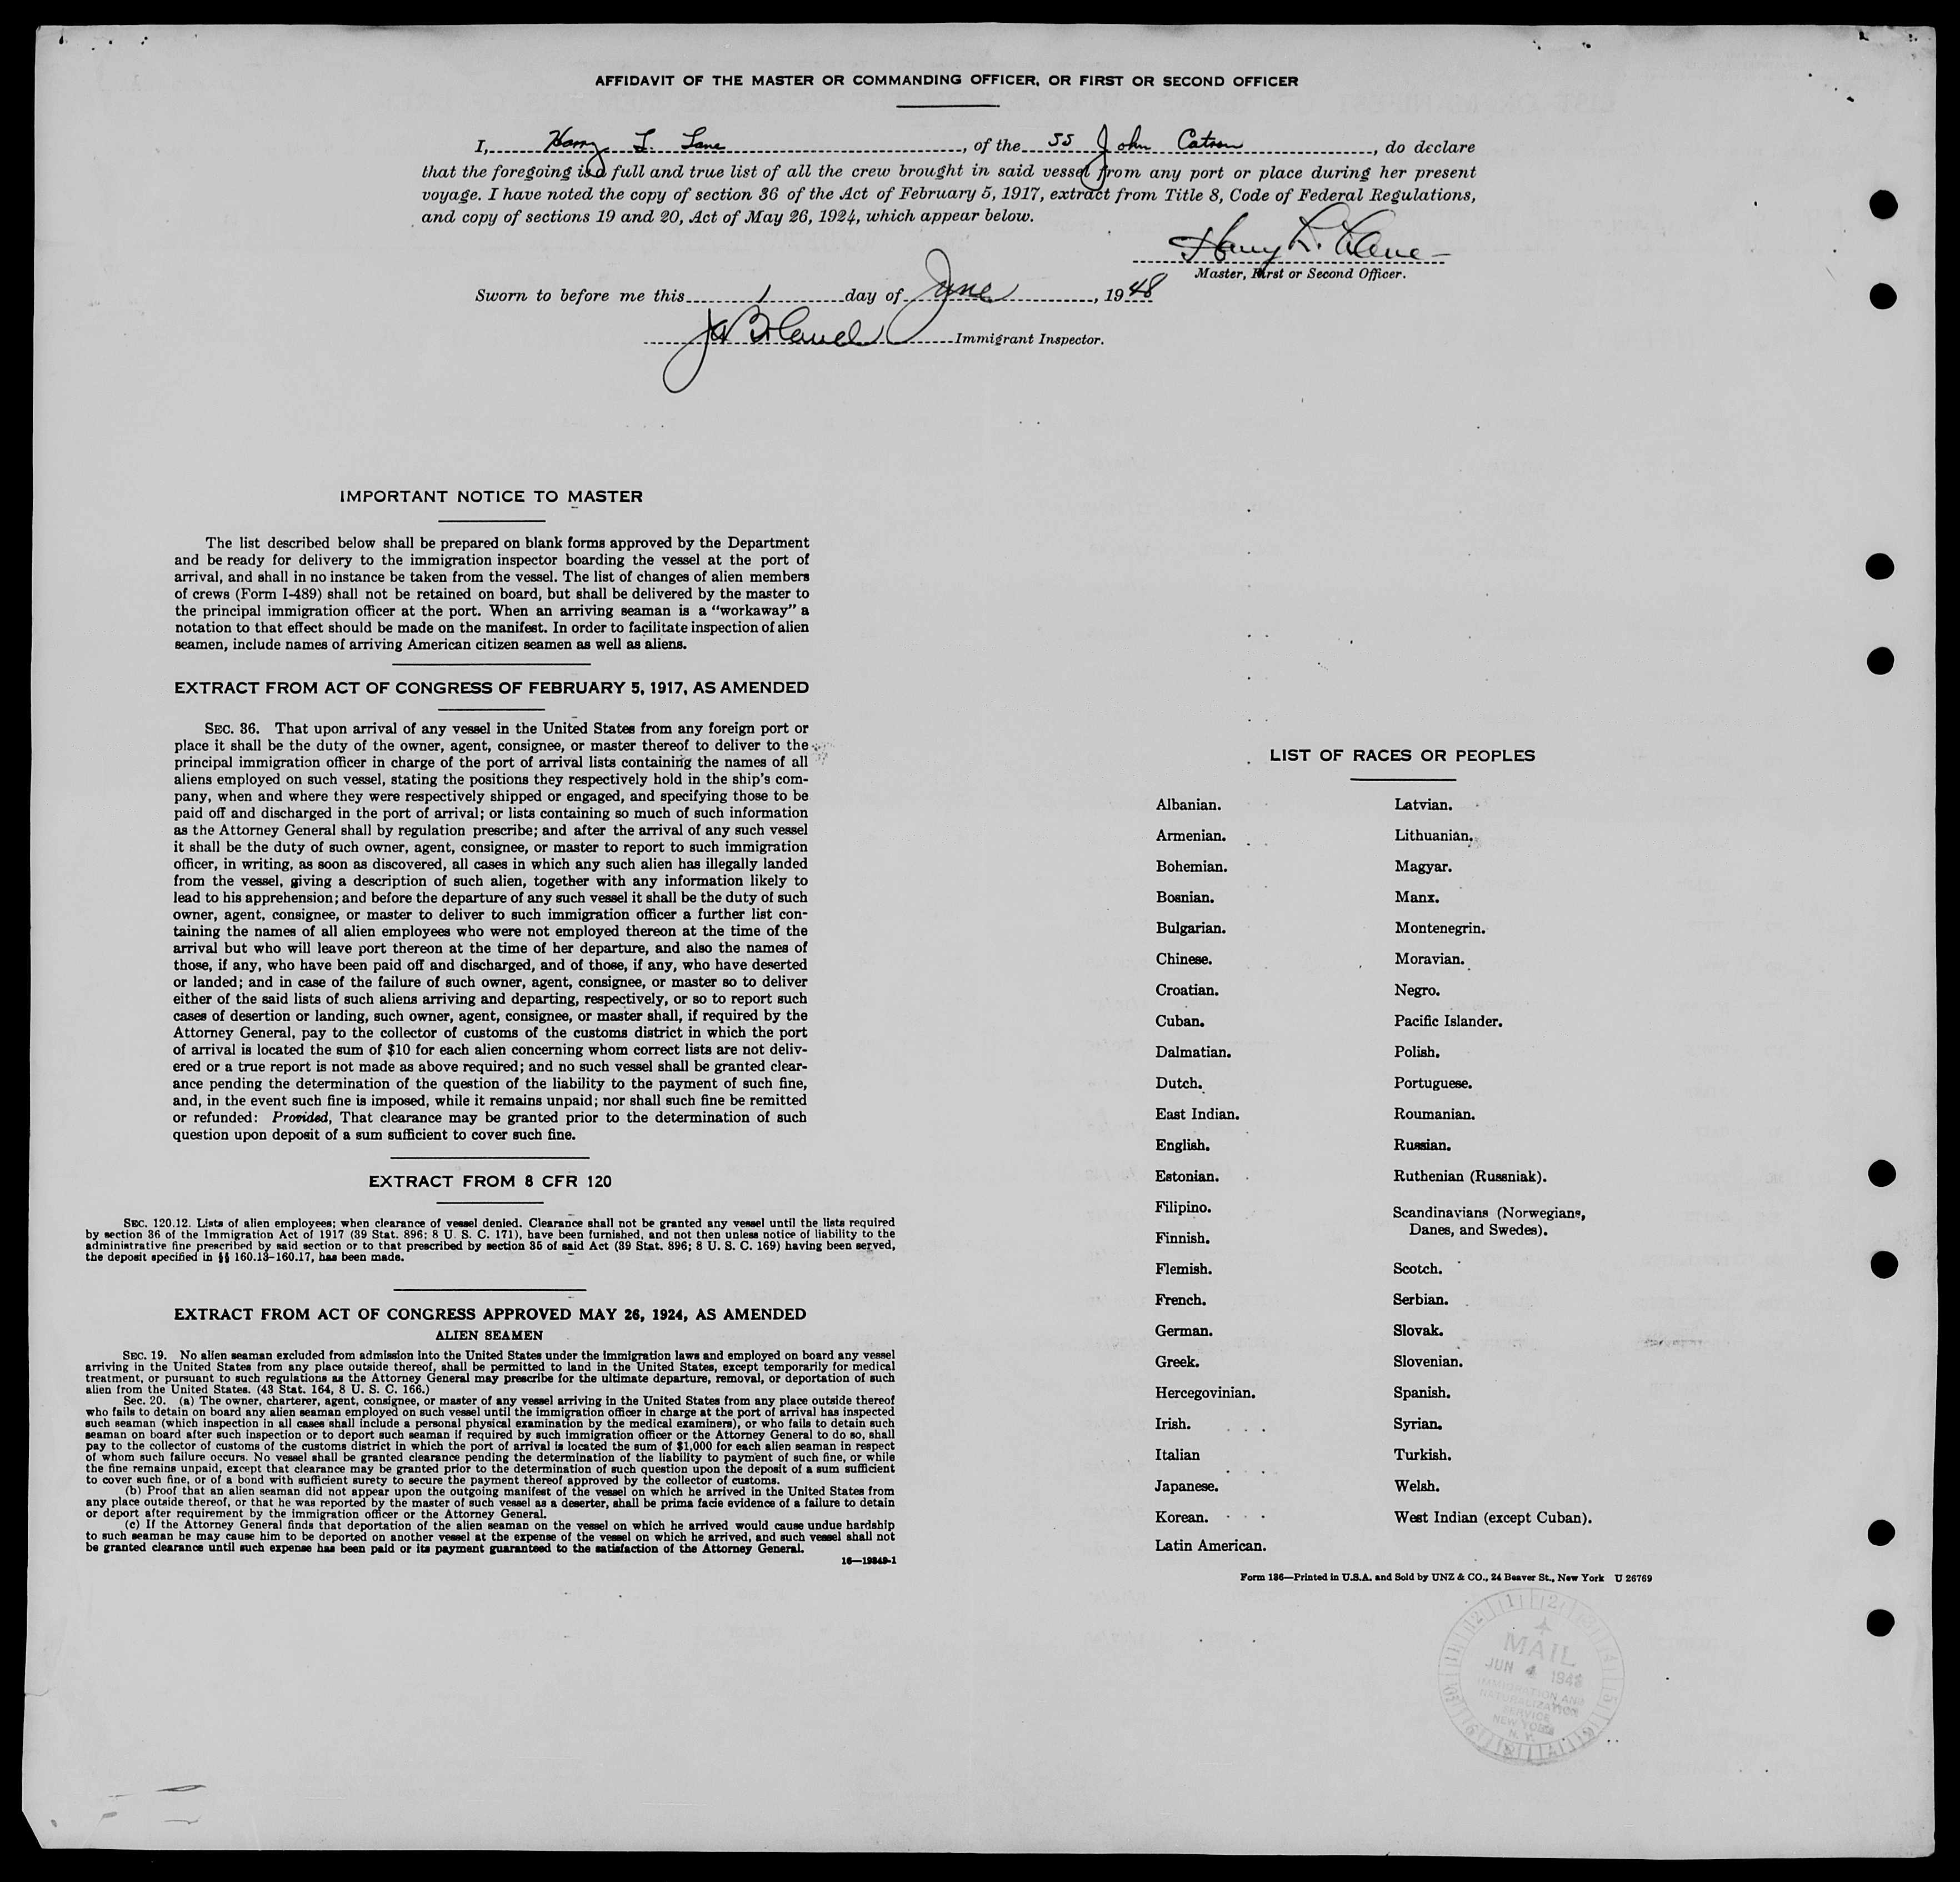 AFFIDAVIT OF THE MASTER OR COMMANDING OFFICER, OR FIRST OR SECOND OFFICER
I, Harry L. Lane, of the SS John Catron, do declare
that the foregoing is a full and true list of all the crew brought in said vessel from any port or place during her present
voyage. I have noted the copy of section 36 of the Act of February 5, 1917, extract from Title 8, Code of Federal Regulations,
and copy of sections 19 and 20, Act of May 26, 1924, which appear below.
Harry L. Lane
Master, First or Second Officer.
Sworn to before me this 1 day of June, 1948
Immigrant Inspector.
IMPORTANT NOTICE TO MASTER
The list described below shall be prepared on blank forms approved by the Department
and be ready for delivery to the immigration inspector boarding the vessel at the port of
arrival, and shall in no instance be taken from the vessel. The list of changes of alien members
of crews (Form I-489) shall not be retained on board, but shall be delivered by the master to
the principal immigration officer at the port. When an arriving seaman is a “workaway” a
notation to that effect should be made on the manifest. In order to facilitate inspection of alien
seamen, include names of arriving American citizen seamen as well as aliens.
EXTRACT FROM ACT OF CONGRESS OF FEBRUARY 5, 1917, AS AMENDED
SEC. 36. That upon arrival of any vessel in the United States from any foreign port or
place it shall be the duty of the owner, agent, consignee, or master thereof to deliver to the
principal immigration officer in charge of the port of arrival lists containing the names of all
aliens employed on such vessel, stating the positions they respectively hold in the ship's com-
pany, when and where they were respectively shipped or engaged, and specifying those to be
paid off and discharged in the port of arrival; or lists containing so much of such information
as the Attorney General shall by regulation prescribe; and after the arrival of any such vessel
it shall be the duty of such owner, agent, consignee, or master to report to such immigration
officer, in writing, as soon as discovered, all cases in which any such alien has illegally landed
from the vessel, giving a description of such alien, together with any information likely to
lead to his apprehension; and before the departure of any such vessel it shall be the duty of such
owner, agent, consignee, or master to deliver to such immigration officer a further list con-
taining the names of all alien employees who were not employed thereon at the time of the
arrival but who will leave port thereon at the time of her departure, and also the names of
those, if any, who have been paid off and discharged, and of those, if any, who have deserted
or landed; and in case of the failure of such owner, agent, consignee, or master so to deliver
either of the said lists of such aliens arriving and departing, respectively, or so to report such
cases of desertion or landing, such owner, agent, consignee, or master shall, if required by the
Attorney General, pay to the collector of customs of the customs district in which the port
of arrival is located the sum of $10 for each alien concerning whom correct lists are not deliv-
ered or a true report is not made as above required; and no such vessel shall be granted clear-
ance pending the determination of the question of the liability to the payment of such fine,
and, in the event such fine is imposed, while it remains unpaid; nor shall such fine be remitted
or refunded: Provided, That clearance may be granted prior to the determination of such
question upon deposit of a sum sufficient to cover such fine.
EXTRACT FROM 8 CFR 120
SEC. 120.12. Lists of alien employees; when clearance of vessel denied. Clearance shall not be granted any vessel until the lists required
by section 36 of the Immigration Act of 1917 (39 Stat. 896; 8 U. S. C. 171), have been furnished, and not then unless notice of liability to the
administrative fine prescribed by said section or to that prescribed by section 35 of said Act (39 Stat. 896; 8 U. S. C. 169) having been served,
the deposit specified in §§ 160.13–160.17, has been made.
EXTRACT FROM ACT OF CONGRESS APPROVED MAY 26, 1924, AS AMENDED
ALIEN SEAMEN
SEC. 19. No alien seaman excluded from admission into the United States under the immigration laws and employed on board any vessel
arriving in the United States from any place outside thereof, shall be permitted to land in the United States, except temporarily for medical
treatment, or pursuant to such regulations as the Attorney General may prescribe for the ultimate departure, removal, or deportation of such
alien from the United States. (43 Stat. 164, 8 U. S. C. 166.)
Sec. 20. (a) The owner, charterer, agent, consignee, or master of any vessel arriving in the United States from any place outside thereof
who fails to detain on board any alien seaman employed on such vessel until the immigration officer in charge at the port of arrival has inspected
such seaman (which inspection in all cases shall include a personal physical examination by the medical examiners), or who fails to detain such
seaman on board after such inspection or to deport such seaman if required by such immigration officer or the Attorney General to do so, shall
pay to the collector of customs of the customs district in which the port of arrival is located the sum of $1,000 for each alien seaman in respect
of whom such failure occurs. No vessel shall be granted clearance pending the determination of the liability to payment of such fine, or while
the fine remains unpaid, except that clearance may be granted prior to the determination of such question upon the deposit of a sum sufficient
to cover such fine, or of a bond with sufficient surety to secure the payment thereof approved by the collector of customs.
(b) Proof that an alien seaman did not appear upon the outgoing manifest of the vessel on which he arrived in the United States from
any place outside thereof, or that he was reported by the master of such vessel as a deserter, shall be prima facie evidence of a failure to detain
or deport after requirement by the immigration officer or the Attorney General.
(c) If the Attorney General finds that deportation of the alien seaman on the vessel on which he arrived would cause undue hardship
to such seaman he may cause him to be deported on another vessel at the expense of the vessel on which he arrived, and such vessel shall not
be granted clearance until such expense has been paid or its payment guaranteed to the satisfaction of the Attorney General.
16—19849-1
LIST OF RACES OR PEOPLES
Albanian.
Armenian.
Bohemian.
Bosnian.
Bulgarian.
Chinese.
Croatian.
Cuban.
Dalmatian.
Dutch.
East Indian.
English.
Estonian.
Filipino.
Finnish.
Flemish.
French.
German.
Greek.
Hercegovinian.
Irish.
Italian
Japanese.
Korean.
Latin American.
Latvian.
Lithuanian.
Magyar.
Manx.
Montenegrin.
Moravian.
Negro.
Pacific Islander.
Polish.
Portuguese.
Roumanian.
Russian.
Ruthenian (Russniak).
Scandinavians (Norwegians,
Danes, and Swedes).
Scotch.
Serbian.
Slovak.
Slovenian.
Spanish.
Syrian.
Turkish.
Welsh.
West Indian (except Cuban).
Form 186—Printed in U.S.A. and Sold by UNZ & CO., 24 Beaver St., New York U 26769
MAIL
JUN 4 1948
IMMIGRATION AND
NATURALIZATION
SERVICE
NEW YORK
N. Y.